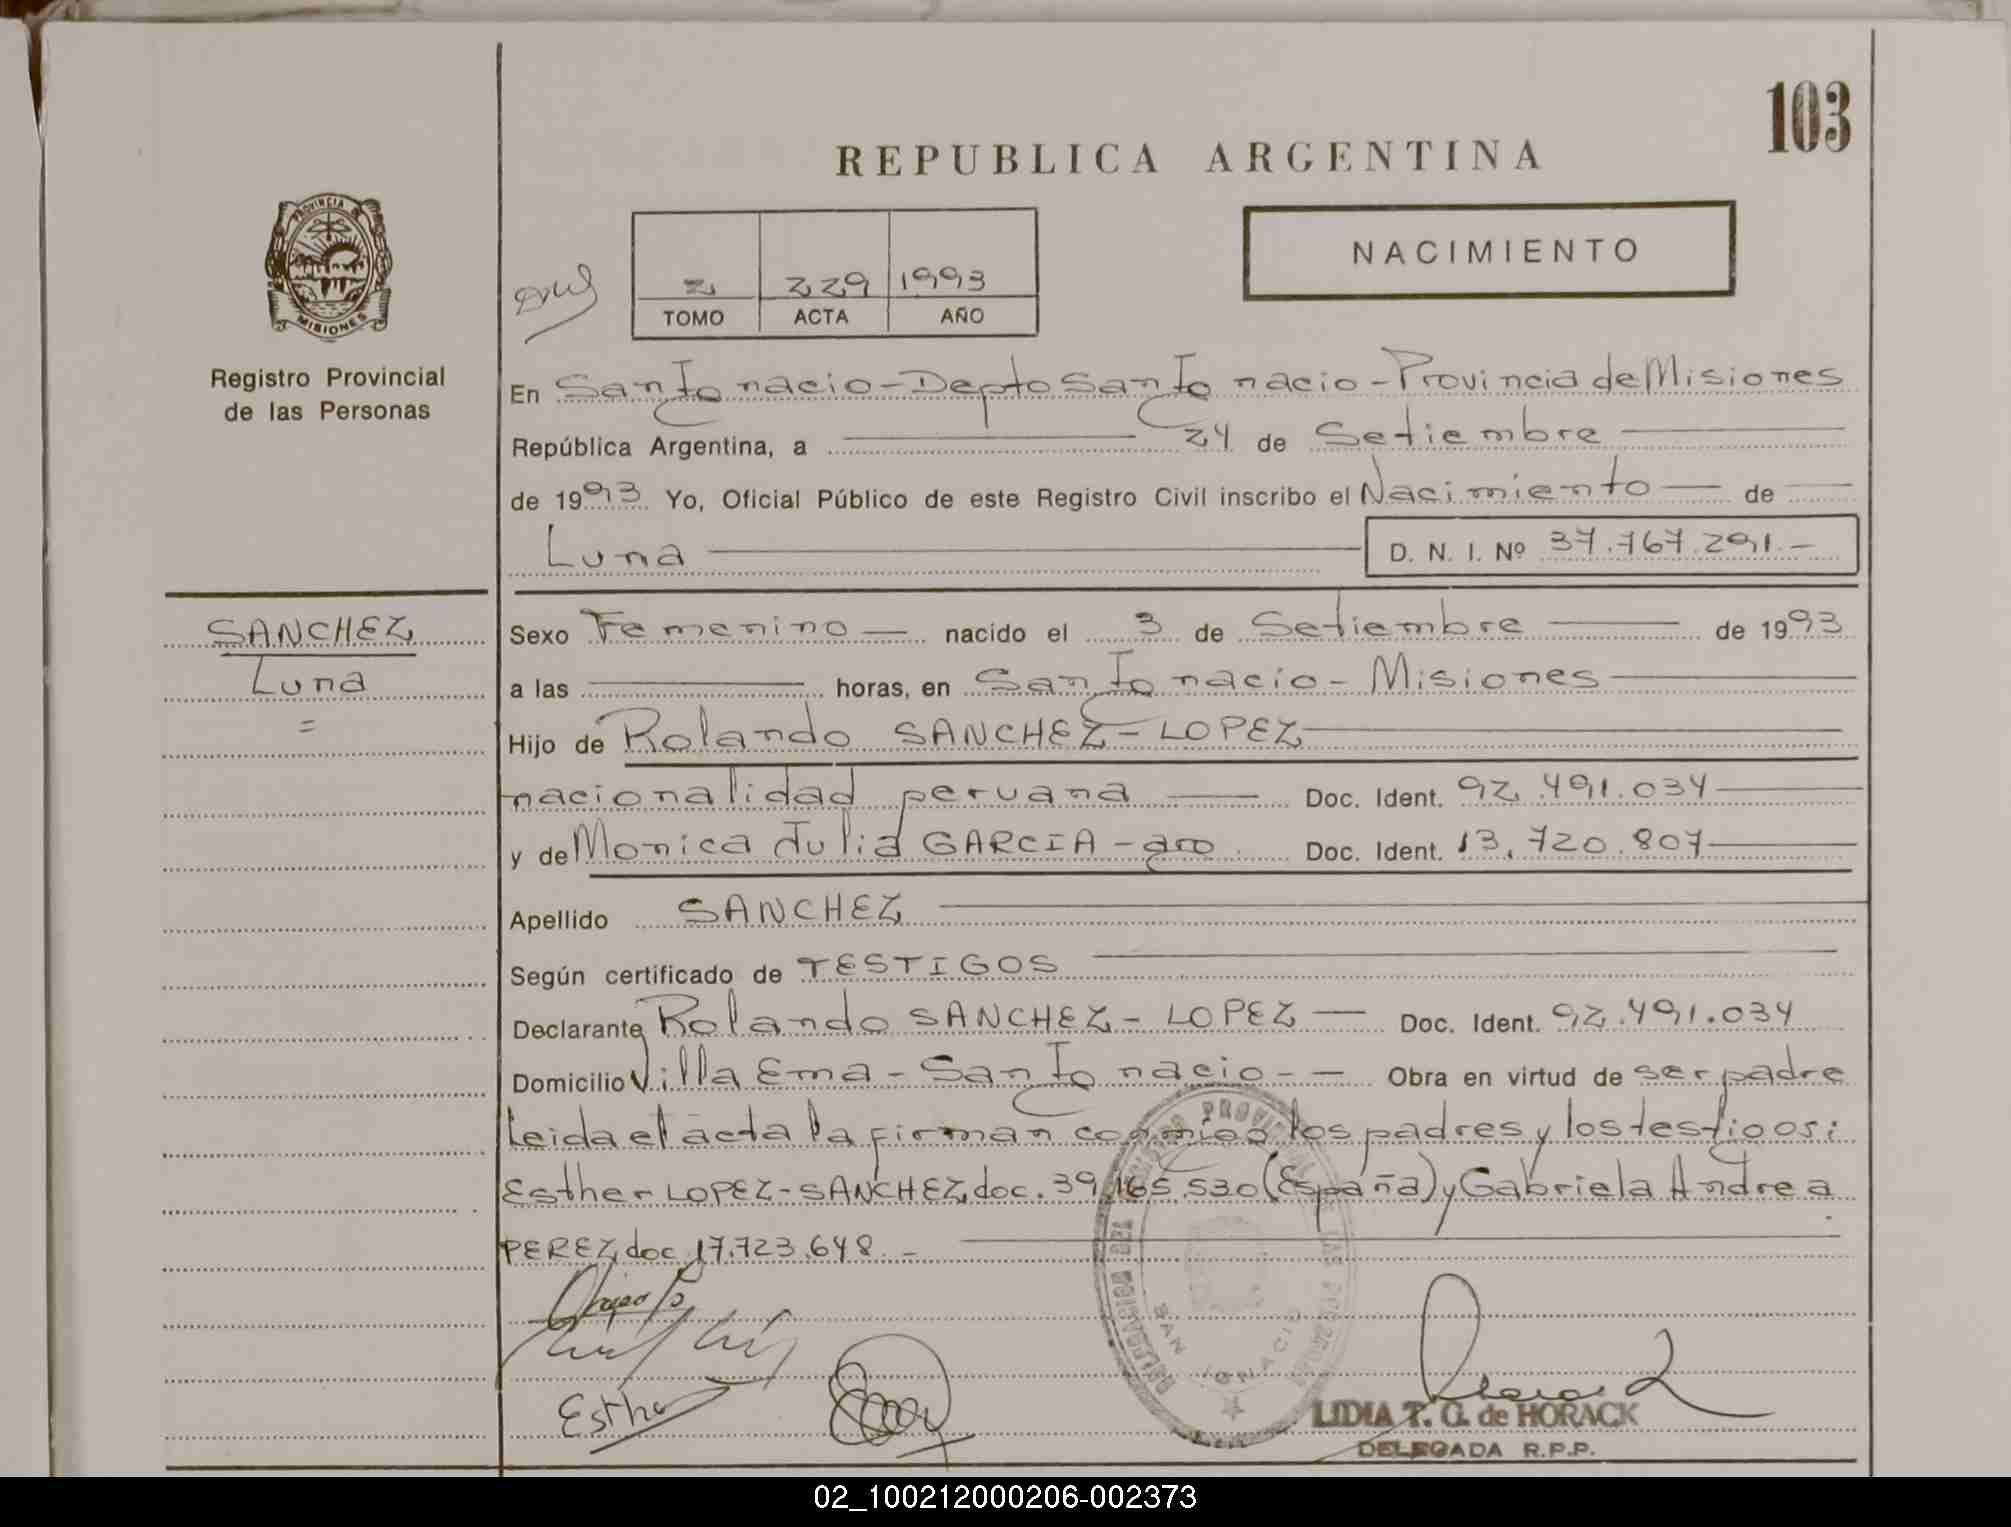 103
REPUBLICA ARGENTINA
PROVINCIA DE
MISIONES
Registro Provincial
de las Personas
2 229 1993
TOMO ACTA AÑO
NACIMIENTO
En San Ignacio - Depto San Ignacio - Provincia de Misiones
República Argentina, a 24 de Setiembre
de 1993 Yo, Oficial Público de este Registro Civil inscribo el Nacimiento de
Luna D. N. I. Nº 37.767.291.-
SANCHEZ
Luna
=
Sexo Femenino nacido el 3 de Setiembre de 1993
a las horas, en San Ignacio - Misiones
Hijo de Rolando SANCHEZ - LOPEZ
nacionalidad peruana Doc. Ident. 92.491.034
y de Monica Julia GARCIA - arg Doc. Ident. 13.720.807
Apellido SANCHEZ
Según certificado de TESTIGOS
Declarante Rolando SANCHEZ - LOPEZ Doc. Ident. 92.491.034
Domicilio Villa Ema - San Ignacio - - Obra en virtud de ser padre
Leida el acta la firman conmigo los padres y los testigos:
Esther LOPEZ - SANCHEZ, doc. 39.165.530 (España) y Gabriela Andrea
PEREZ, doc. 17.723.648. -
DELEGACION DEL REGISTRO PROVINCIAL DE LAS PERSONAS
SAN IGNACIO
Esther
LIDIA T. G. de HORACK
DELEGADA R.P.P.
02_100212000206-002373